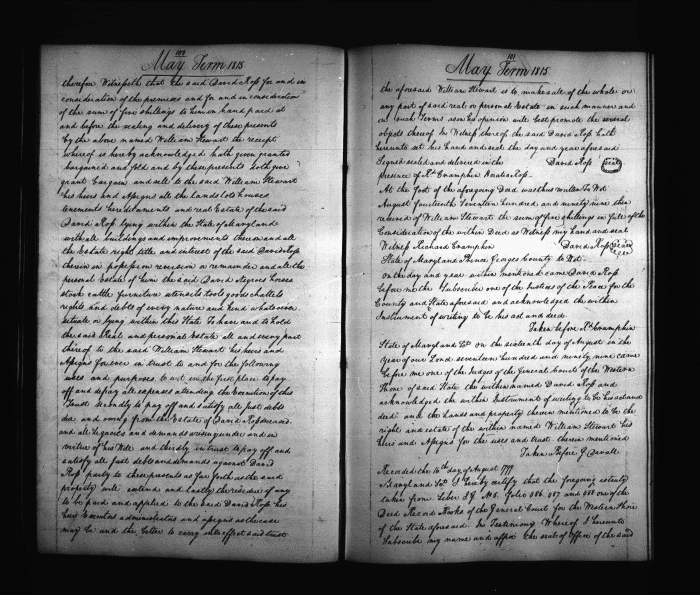 100
May Term 1815
therefore Witnesseth that the said David Ross for and in
consideration of the premises and for and in consideration
of the sum of five shillings to him in hand paid at
and before the sealing and delivery of these presents
by the above named William Stewart the receipt
whereof is hereby acknowledged hath given granted
bargained and sold and by these presents doth give
grant bargain and sell to the said William Stewart
his heirs and assigns all the lands lots houses
tenements hereditaments and real Estate of the said
David Ross lying within the State of Maryland
with all buildings and improvements thereon and all
the Estate right title and interest of the said David Ross
therein in possession reversion or remainder and all the
personal Estate of him the said David Negroes horses
stock cattle furniture utensils tools goods chattels
rights and debts of every nature and kind whatsoever
situate or lying within this State To have and to hold
the said Real and personal Estate all and every part
thereof to the said William Stewart his heirs and
assigns forever in trust to and for the following
uses and purposes to wit in the first place to pay
off and defray all expenses attending the Execution of this
Trust secondly to pay off and satisfy all just debts
due and owing from the Estate of David Ross deceased
and all legacies and demands arising under and in
virtue of his Will and thirdly in trust to pay off and
satisfy all just debts and demands against David
Ross party to these presents as far forth as the said
property will extend and lastly the residue if any
to be paid and applied to the said David Ross his
heirs Executors administrators and assigns as the case
may be and the better to carry into effect said trust
101
May Term 1815
the aforesaid William Stewart is to make sale of the whole or
any part of said real or personal Estate in such manner and
on such Terms as in his opinion will best promote the several
objects thereof In Witness whereof the said David Ross hath
hereunto set his hand and seal the day and year aforesaid
Signed sealed and delivered in the David Ross seal
presence of Rd Cramphin
At the foot of the aforegoing Deed was thus written To Wit
August fourteenth Seventeen hundred and ninety nine then
received of William Stewart the sum of five shillings in full of the
Consideration of the within Deed as Witness my hand and seal
Witness Richard Cramphin David Ross seal
State of Maryland Prince Georges County to Wit
on the day and year within mentioned came David Ross
before me the Subscriber one of the Justices of the Peace for the
County and State aforesaid and acknowledged the within
Instrument of writing to be his act and deed
Taken before Rd Cramphin
State of Maryland Sct on the sixteenth day of August in the
year of our Lord seventeen hundred and ninety nine came
before me one of the Judges of the General Court of the Western
Shore of said State the within named David Ross and
acknowledged the within Instrument of writing to be his act and
deed and the lands and property therein mentioned to be the
right and estate of the within named William Stewart his
heirs and Assigns for the uses and trust therein mentioned
Taken Before G Duvall
Recorded the 16th day of August 1799
Maryland Sct I hereby certify that the foregoing is truly
taken from Liber J G No 5 folio 586 587 and 588 one of the
Deed Record Books of the General Court for the Western Shore
of the State aforesaid In Testimony Whereof I hereunto
Subscribe my name and affix the seal of office of the said